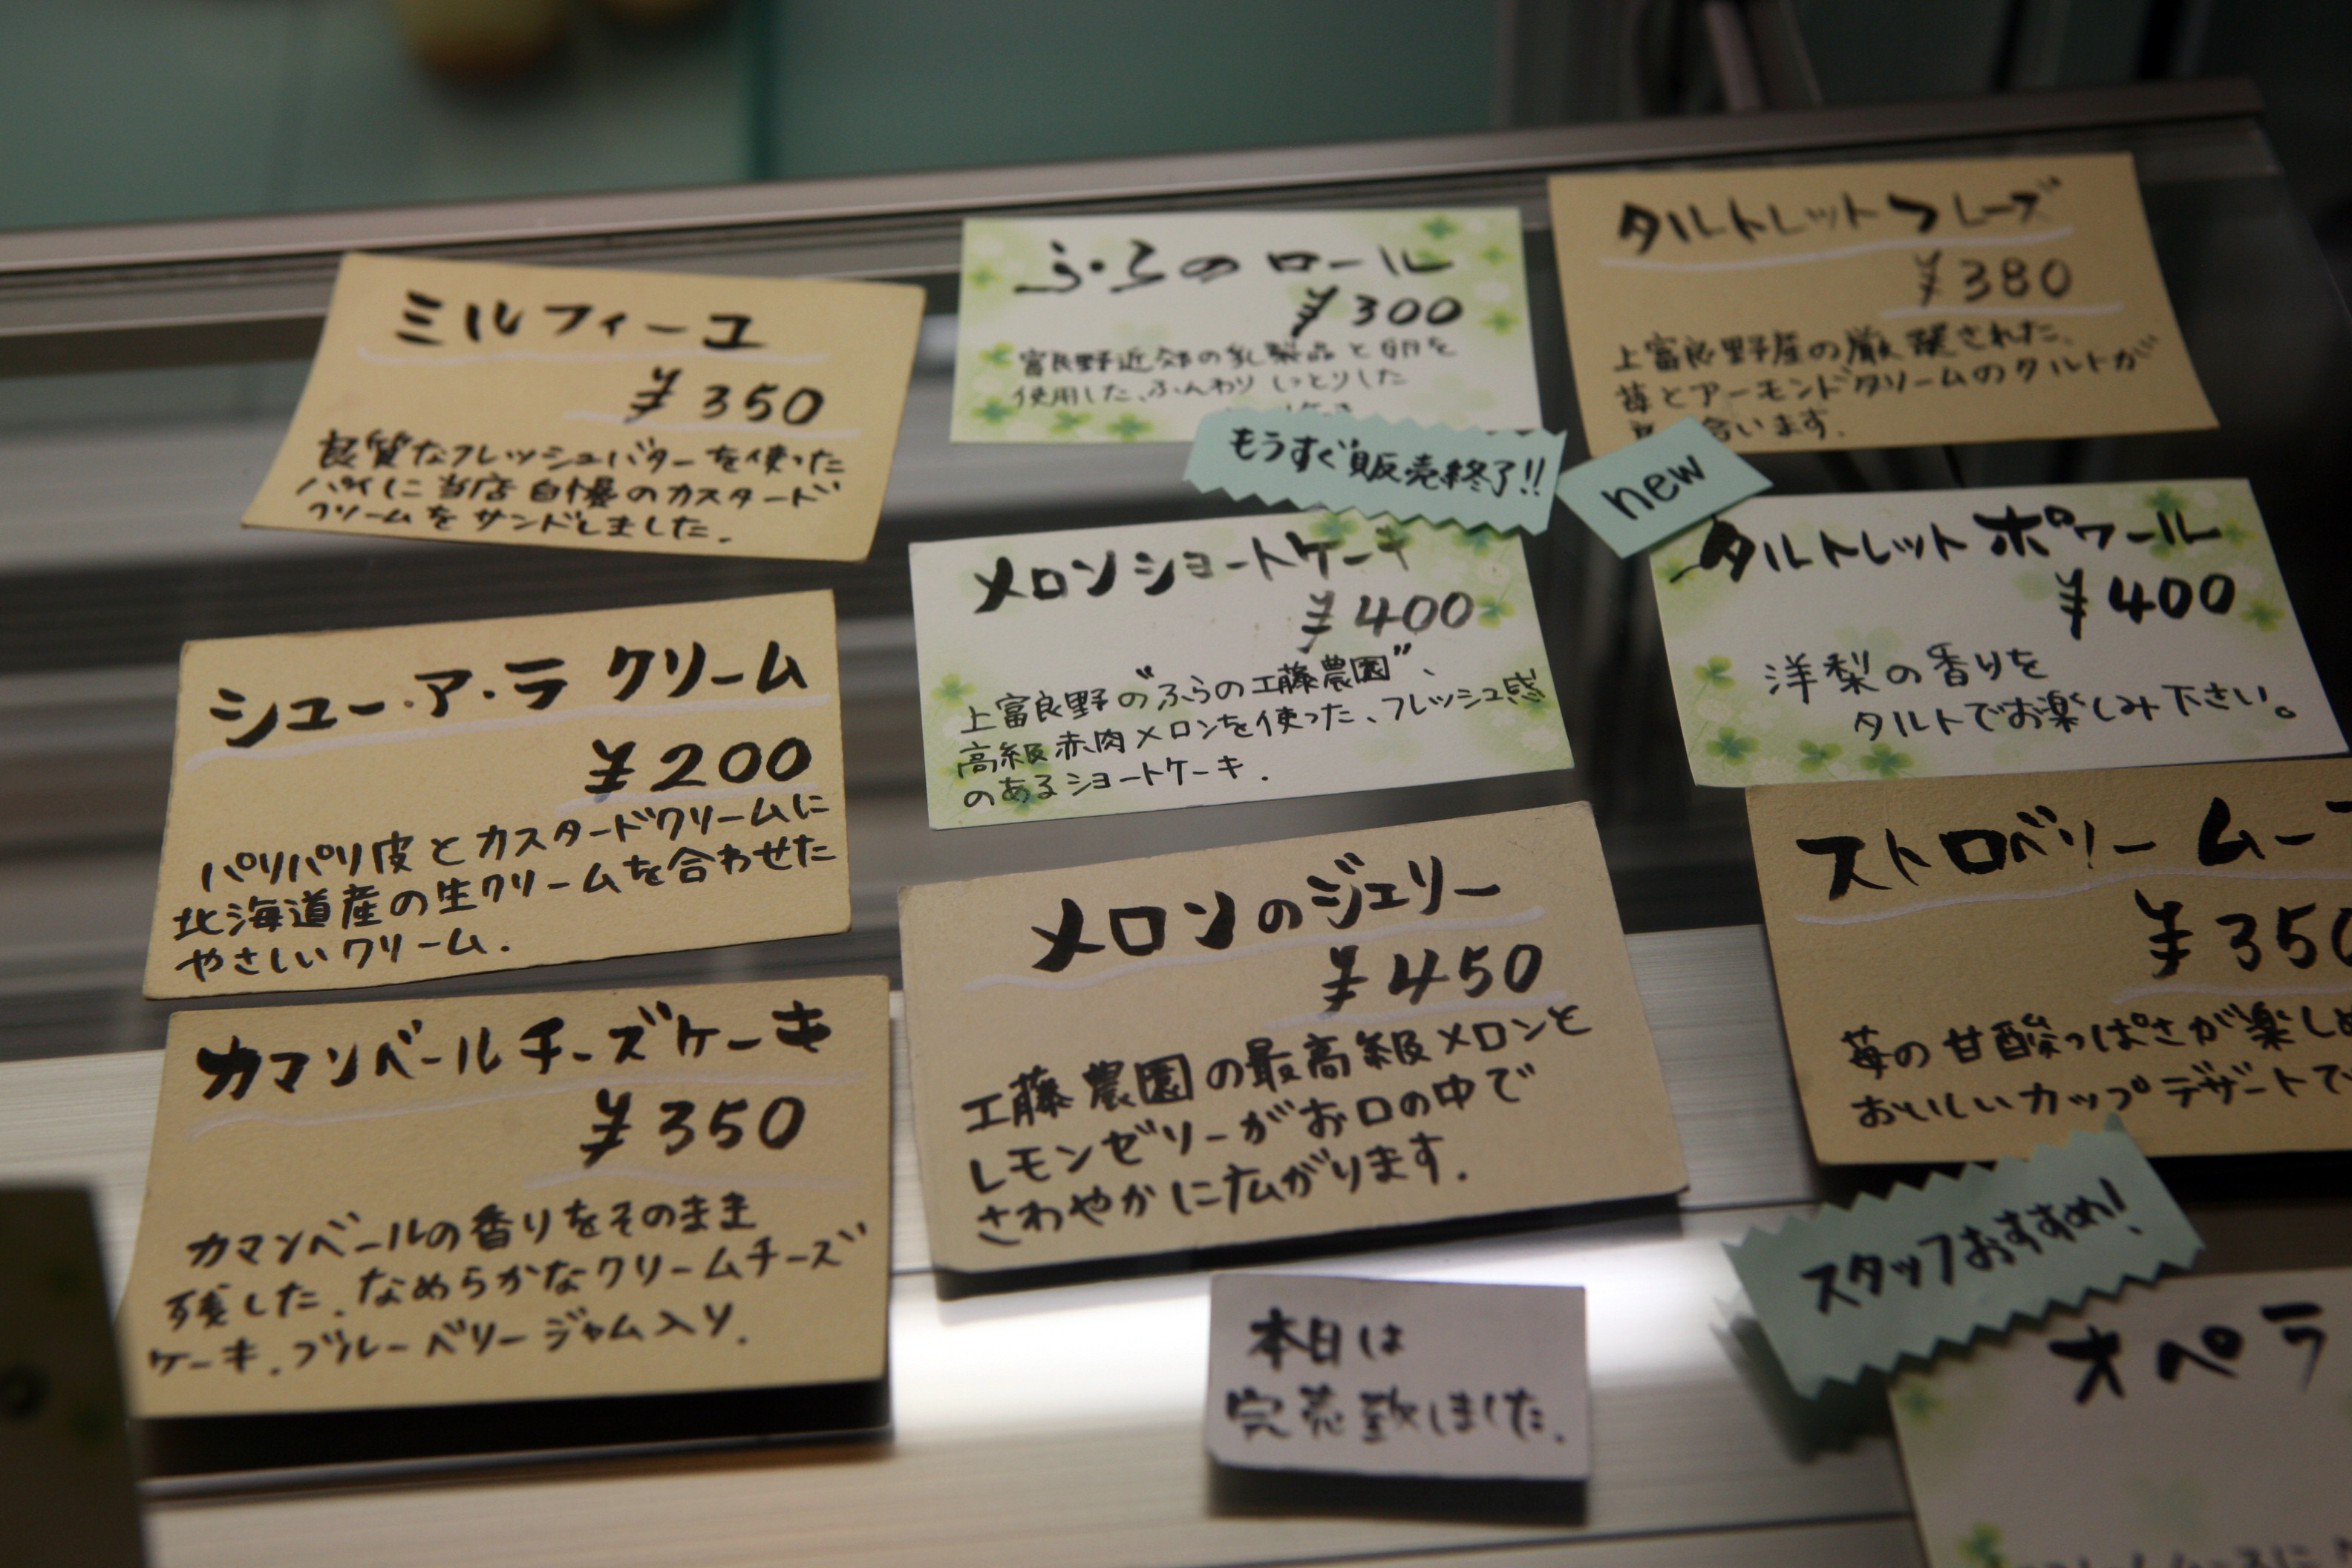 ミルフィーユ
¥350
良質なフレッシュバターを使った
パイに当店自慢のカスタード
クリームをサンドしました.
ふらのロール
¥300
富良野近郊の乳製品と卵を
使用した、ふんわりしっとりした
もうすぐ販売終了!!
タルトレットフレーズ
¥380
上富良野産の厳選された、
苺とアーモンドクリームのタルトが
合います.
new
シュー・ア・ラ クリーム
¥200
パリパリ皮とカスタードクリームに
北海道産の生クリームを合わせた
やさしいクリーム.
メロンショートケーキ
¥400
上富良野の"ふらの工藤農園"、
高級赤肉メロンを使った、フレッシュ感
のあるショートケーキ.
タルトレットポワール
¥400
洋梨の香りを
タルトでお楽しみ下さい。
カマンベールチーズケーキ
¥350
カマンベールの香りをそのまま
残した、なめらかなクリームチーズ
ケーキ.ブルーベリージャム入り.
メロンのジェリー
¥450
工藤農園の最高級メロンと
レモンゼリーがお口の中で
さわやかに広がります.
ストロベリー ムー
¥350
苺の甘酸っぱさが楽しめ
おいしいカップデザートで
本日は
完売致しました.
スタッフおすすめ!
オペラ